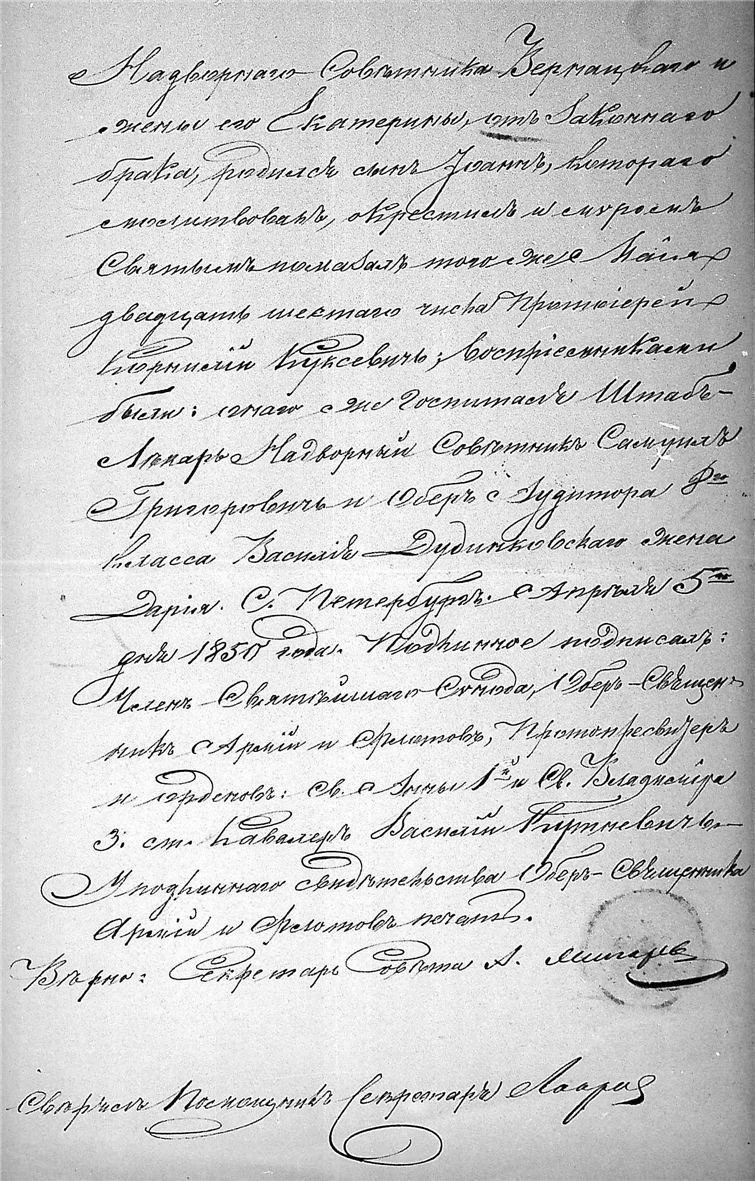 Надворнаго Совѣтника Вернацкаго и
жены его Екатерины, отъ законнаго
брака, родился сынъ Іоаннъ, котораго
молитвовалъ, окрестилъ и мѵромъ
Святымъ помазалъ того же Маія
двадцать шестаго числа Протоіерей
Корнилій Куксевичъ; воспріемниками
были: онаго же Госпиталя Штабъ-
Лѣкарь Надворный Совѣтникъ Самуилъ
Григоровичъ и Оберъ Аудитора 8го
класса Василія Дубинковскаго жена
Дарія. С. Петербургъ. Апрѣля 5го
дня 1850 года. Подлинное подписалъ:
Членъ Святѣйшаго Сѵнода, Оберъ-Священ-
никъ Армій и Флотовъ, Протопресвитеръ
и орденовъ: Св. Анны 1й и Св. Владиміра
3. ст. Кавалеръ Василій Кутневичъ.
У подлиннаго свидѣтельства Оберъ-Священника
Армій и Флотовъ печать.
Вѣрно: Секретарь Совѣта А.
Свѣрялъ Помощникъ Секретаря